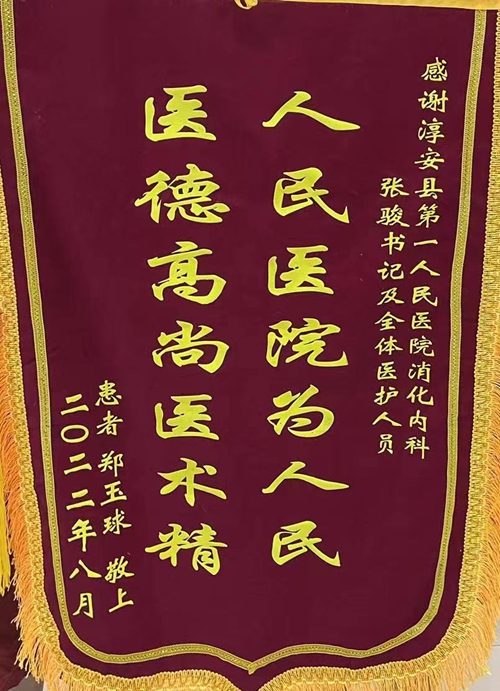 感谢淳安县第一人民医院消化内科
张骏书记及全体医护人员
人民医院为人民
医德高尚医术精
患者 郑玉球 敬上
二〇二二年八月